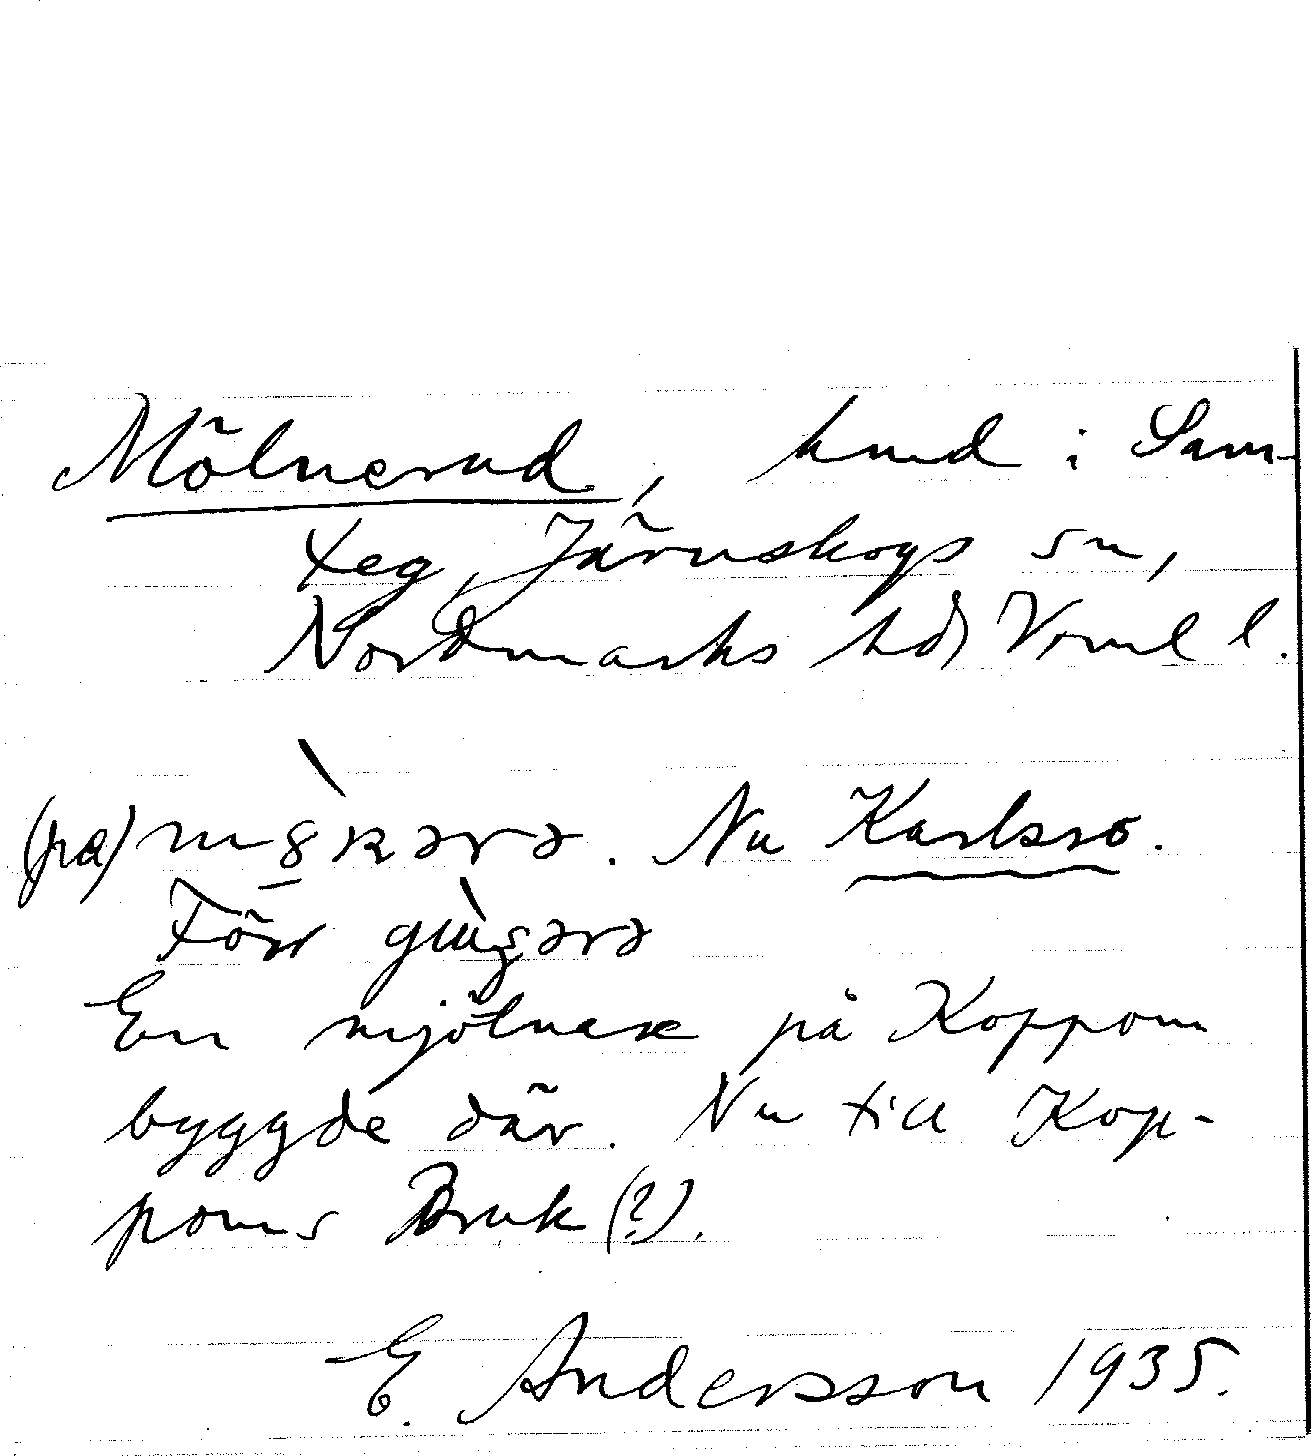 Mölnerud, hmd i Sam-
teg, Järnskogs sn,
Nordmarks hd, Vrml l.
(på) Nu Karlsro.
Förr
En mjölnare på Koppom
byggde där. Nu till Kop-
poms Bruk (?).
E. Andersson 1935.